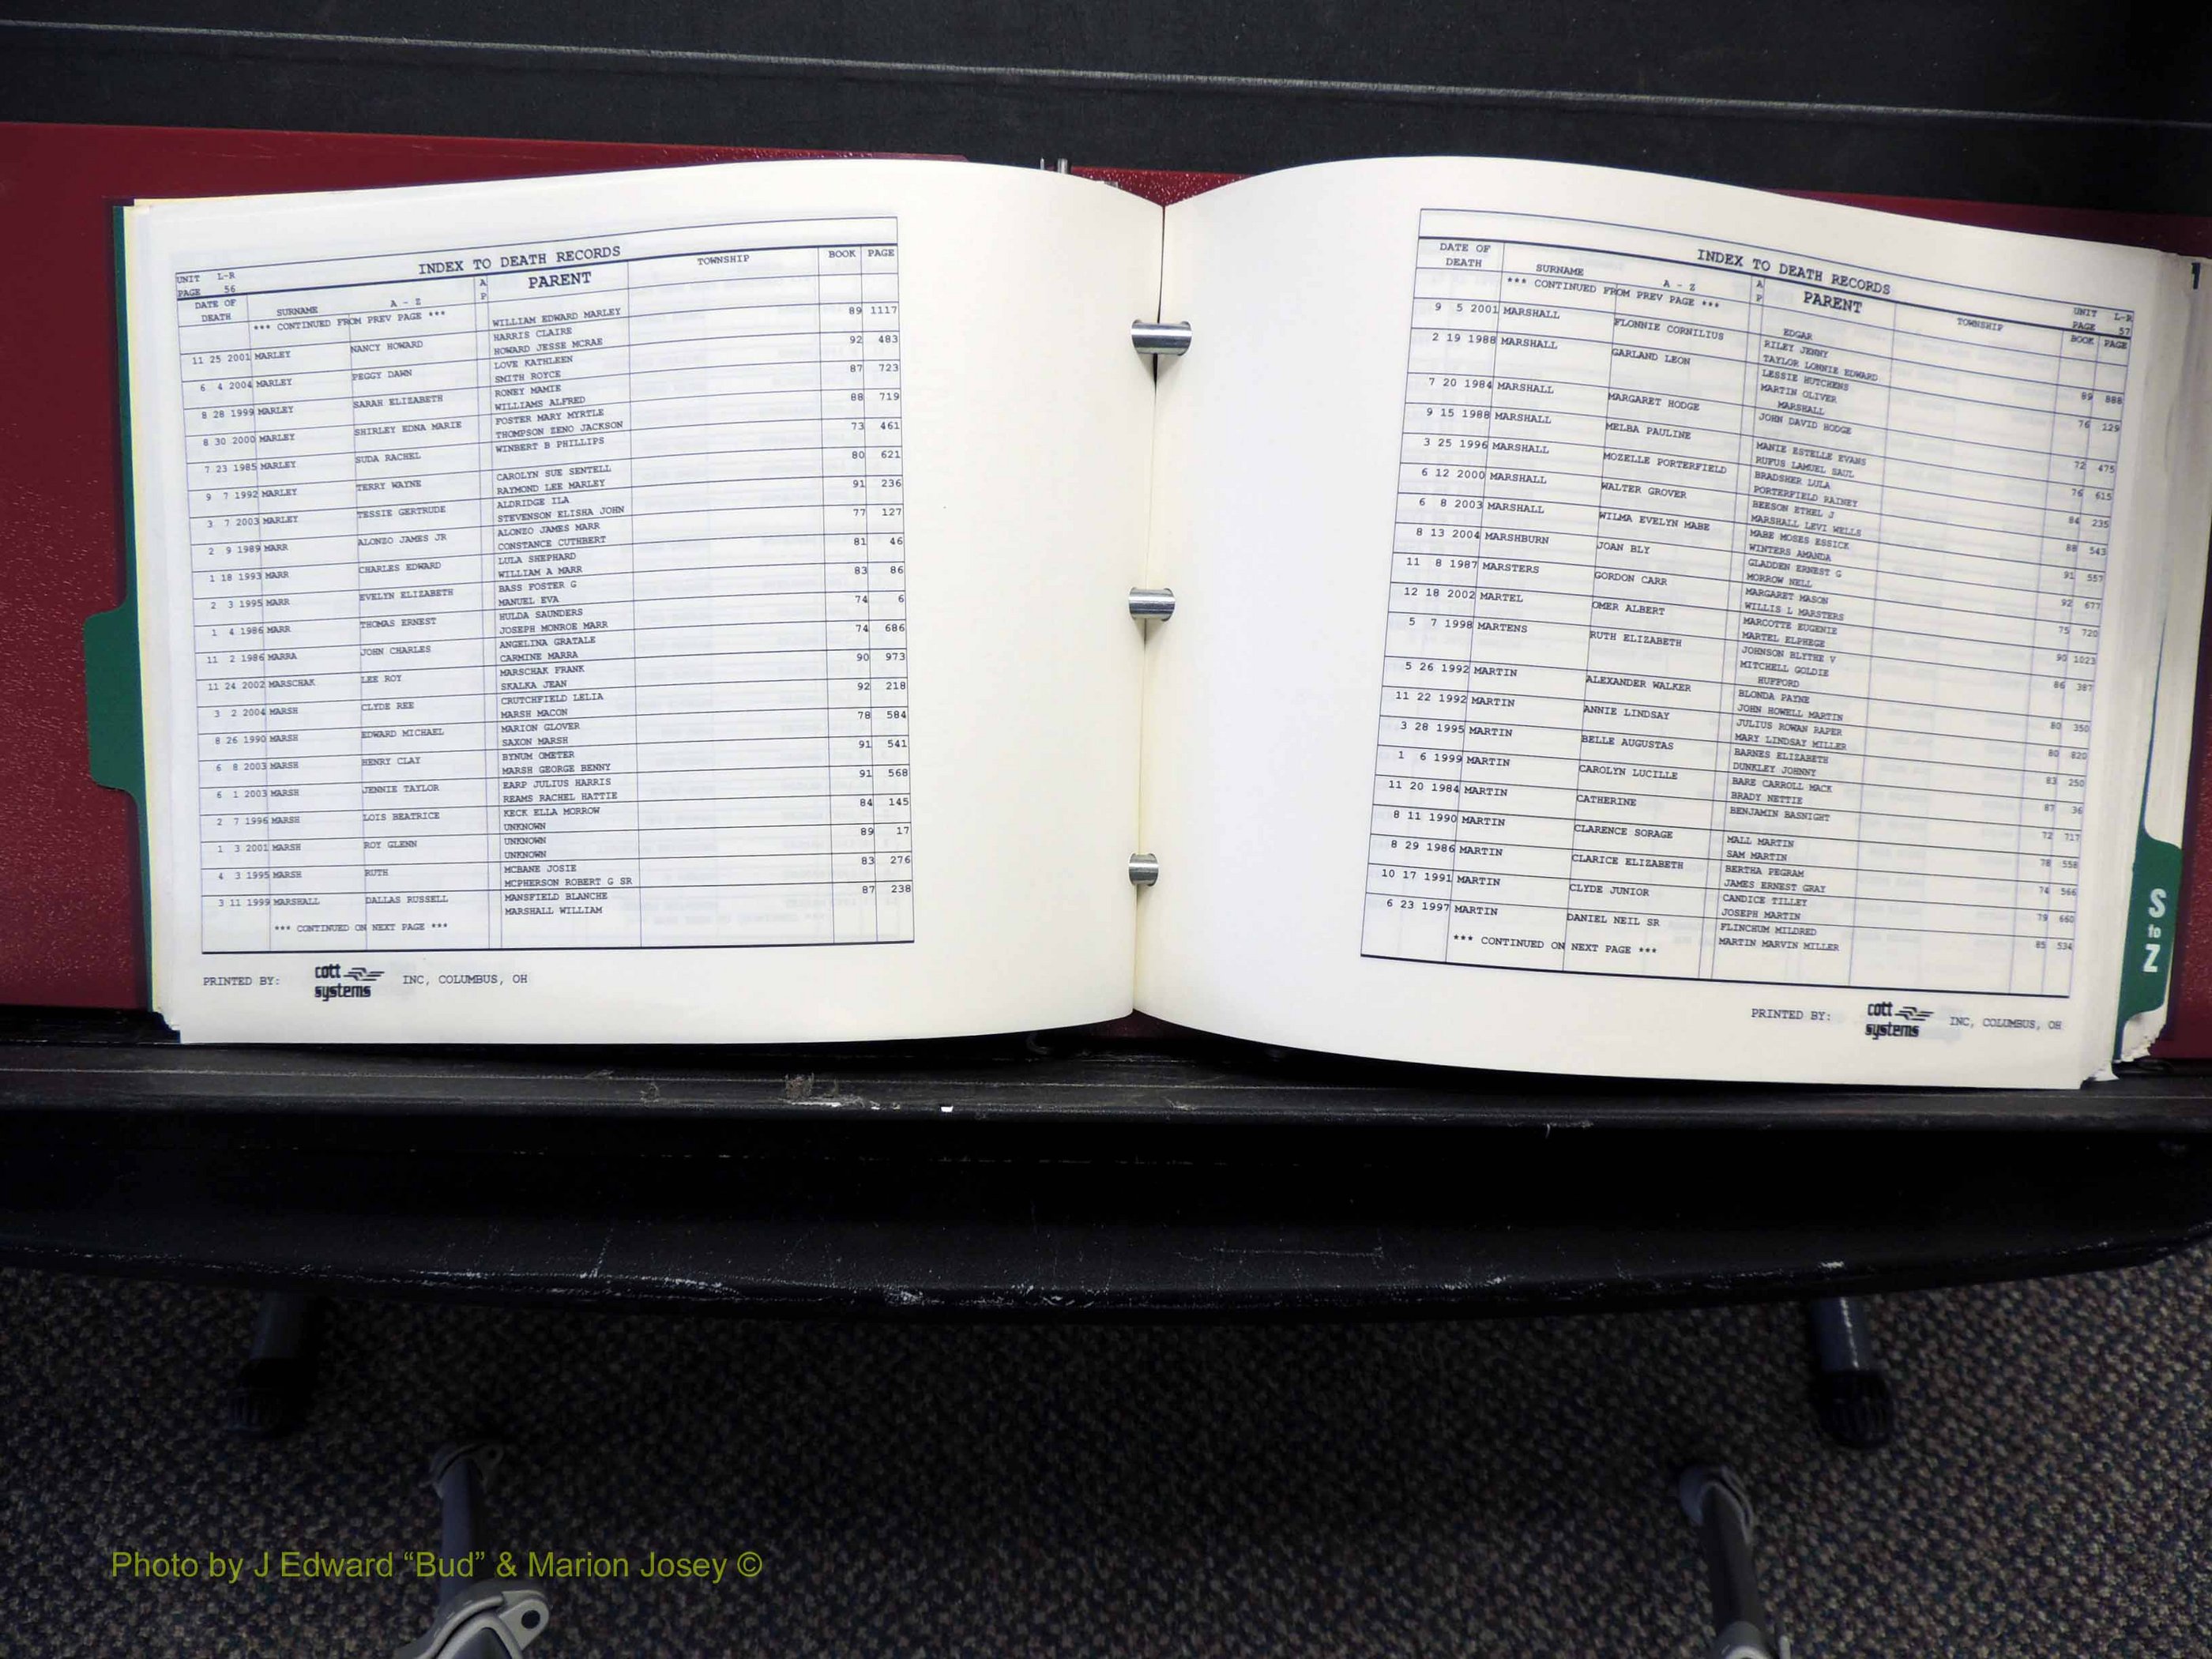 UNIT L-R
PAGE 56
INDEX TO DEATH RECORDS
DATE OF DEATH SURNAME A - Z A P PARENT TOWNSHIP BOOK PAGE
*** CONTINUED FROM PREV PAGE ***
WILLIAM EDWARD MARLEY 89 1117
11 25 2001 MARLEY NANCY HOWARD HARRIS CLAIRE
HOWARD JESSE MCRAE 92 483
6 4 2004 MARLEY PEGGY DAWN LOVE KATHLEEN
SMITH ROYCE 87 723
8 28 1999 MARLEY SARAH ELIZABETH RONEY MAMIE
WILLIAMS ALFRED 88 719
8 30 2000 MARLEY SHIRLEY EDNA MARIE FOSTER MARY MYRTLE
THOMPSON ZENO JACKSON 73 461
7 23 1985 MARLEY SUDA RACHEL WINBERT B PHILLIPS
80 621
9 7 1992 MARLEY TERRY WAYNE CAROLYN SUE SENTELL
RAYMOND LEE MARLEY 91 236
3 7 2003 MARLEY TESSIE GERTRUDE ALDRIDGE ILA
STEVENSON ELISHA JOHN 77 127
2 9 1989 MARR ALONZO JAMES JR ALONZO JAMES MARR
CONSTANCE CUTHBERT 81 46
1 18 1993 MARR CHARLES EDWARD LULA SHEPHARD
WILLIAM A MARR 83 86
2 3 1995 MARR EVELYN ELIZABETH BASS FOSTER G
MANUEL EVA 74 6
1 4 1986 MARR THOMAS ERNEST HULDA SAUNDERS
JOSEPH MONROE MARR 74 686
11 2 1986 MARRA JOHN CHARLES ANGELINA GRATALE
CARMINE MARRA 90 973
11 24 2002 MARSCHAK LEE ROY MARSCHAK FRANK
SKALKA JEAN 92 218
3 2 2004 MARSH CLYDE REE CRUTCHFIELD LELIA
MARSH MACON 78 584
8 26 1990 MARSH EDWARD MICHAEL MARION GLOVER
SAXON MARSH 91 541
6 8 2003 MARSH HENRY CLAY BYNUM OMETER
MARSH GEORGE BENNY 91 568
6 1 2003 MARSH JENNIE TAYLOR EARP JULIUS HARRIS
REAMS RACHEL HATTIE 84 145
2 7 1996 MARSH LOIS BEATRICE KECK ELLA MORROW
UNKNOWN 89 17
1 3 2001 MARSH ROY GLENN UNKNOWN
UNKNOWN 83 276
4 3 1995 MARSH RUTH MCBANE JOSIE
MCPHERSON ROBERT G SR 87 238
3 11 1999 MARSHALL DALLAS RUSSELL MANSFIELD BLANCHE
MARSHALL WILLIAM
*** CONTINUED ON NEXT PAGE ***
PRINTED BY: cott systems INC, COLUMBUS, OH
INDEX TO DEATH RECORDS
UNIT L-R
PAGE 57
DATE OF DEATH SURNAME A - Z A P PARENT TOWNSHIP BOOK PAGE
*** CONTINUED FROM PREV PAGE ***
EDGAR
9 5 2001 MARSHALL FLONNIE CORNILIUS RILEY JENNY
TAYLOR LONNIE EDWARD 89 888
2 19 1988 MARSHALL GARLAND LEON LESSIE HUTCHENS
MARTIN OLIVER
MARSHALL 76 129
7 20 1984 MARSHALL MARGARET HODGE JOHN DAVID HODGE
72 475
9 15 1988 MARSHALL MELBA PAULINE MANIE ESTELLE EVANS
RUFUS LAMUEL SAUL 76 615
3 25 1996 MARSHALL MOZELLE PORTERFIELD BRADSHER LULA
PORTERFIELD RAINEY 84 235
6 12 2000 MARSHALL WALTER GROVER BEESON ETHEL J
MARSHALL LEVI WELLS 88 543
6 8 2003 MARSHALL WILMA EVELYN MABE MABE MOSES ESSICK
WINTERS AMANDA 91 557
8 13 2004 MARSHBURN JOAN BLY GLADDEN ERNEST G
MORROW NELL 92 677
11 8 1987 MARSTERS GORDON CARR MARGARET MASON
WILLIS L MARSTERS 75 720
12 18 2002 MARTEL OMER ALBERT MARCOTTE EUGENIE
MARTEL ELPHEGE 90 1023
5 7 1998 MARTENS RUTH ELIZABETH JOHNSON BLYTHE V
MITCHELL GOLDIE
HUFFORD 86 387
5 26 1992 MARTIN ALEXANDER WALKER BLONDA PAYNE
JOHN HOWELL MARTIN 80 350
11 22 1992 MARTIN ANNIE LINDSAY JULIUS ROWAN RAPER
MARY LINDSAY MILLER 80 820
3 28 1995 MARTIN BELLE AUGUSTAS BARNES ELIZABETH
DUNKLEY JOHNNY 83 250
1 6 1999 MARTIN CAROLYN LUCILLE BARE CARROLL MACK
BRADY NETTIE 87 36
11 20 1984 MARTIN CATHERINE BENJAMIN BASNIGHT
72 717
8 11 1990 MARTIN CLARENCE SORAGE MALL MARTIN
SAM MARTIN 78 558
8 29 1986 MARTIN CLARICE ELIZABETH BERTHA PEGRAM
JAMES ERNEST GRAY 74 566
10 17 1991 MARTIN CLYDE JUNIOR CANDICE TILLEY
JOSEPH MARTIN 79 660
6 23 1997 MARTIN DANIEL NEIL SR FLINCHUM MILDRED
MARTIN MARVIN MILLER 85 534
*** CONTINUED ON NEXT PAGE ***
PRINTED BY: cott systems INC, COLUMBUS, OH
S
to
Z
Photo by J Edward “Bud” & Marion Josey ©